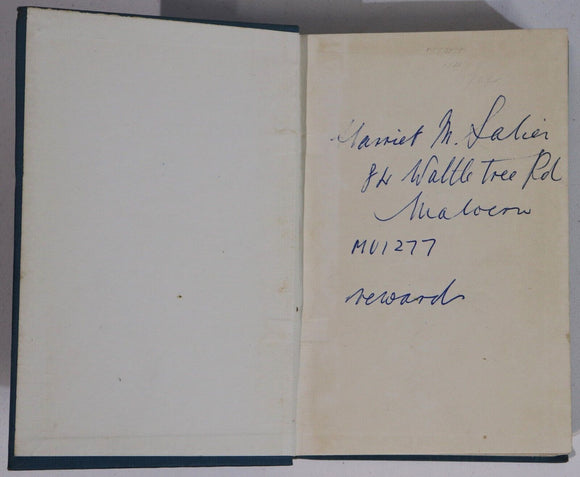 Harriet M. Salier
84 Wattle Tree Rd
Malvern
MU1277
reward